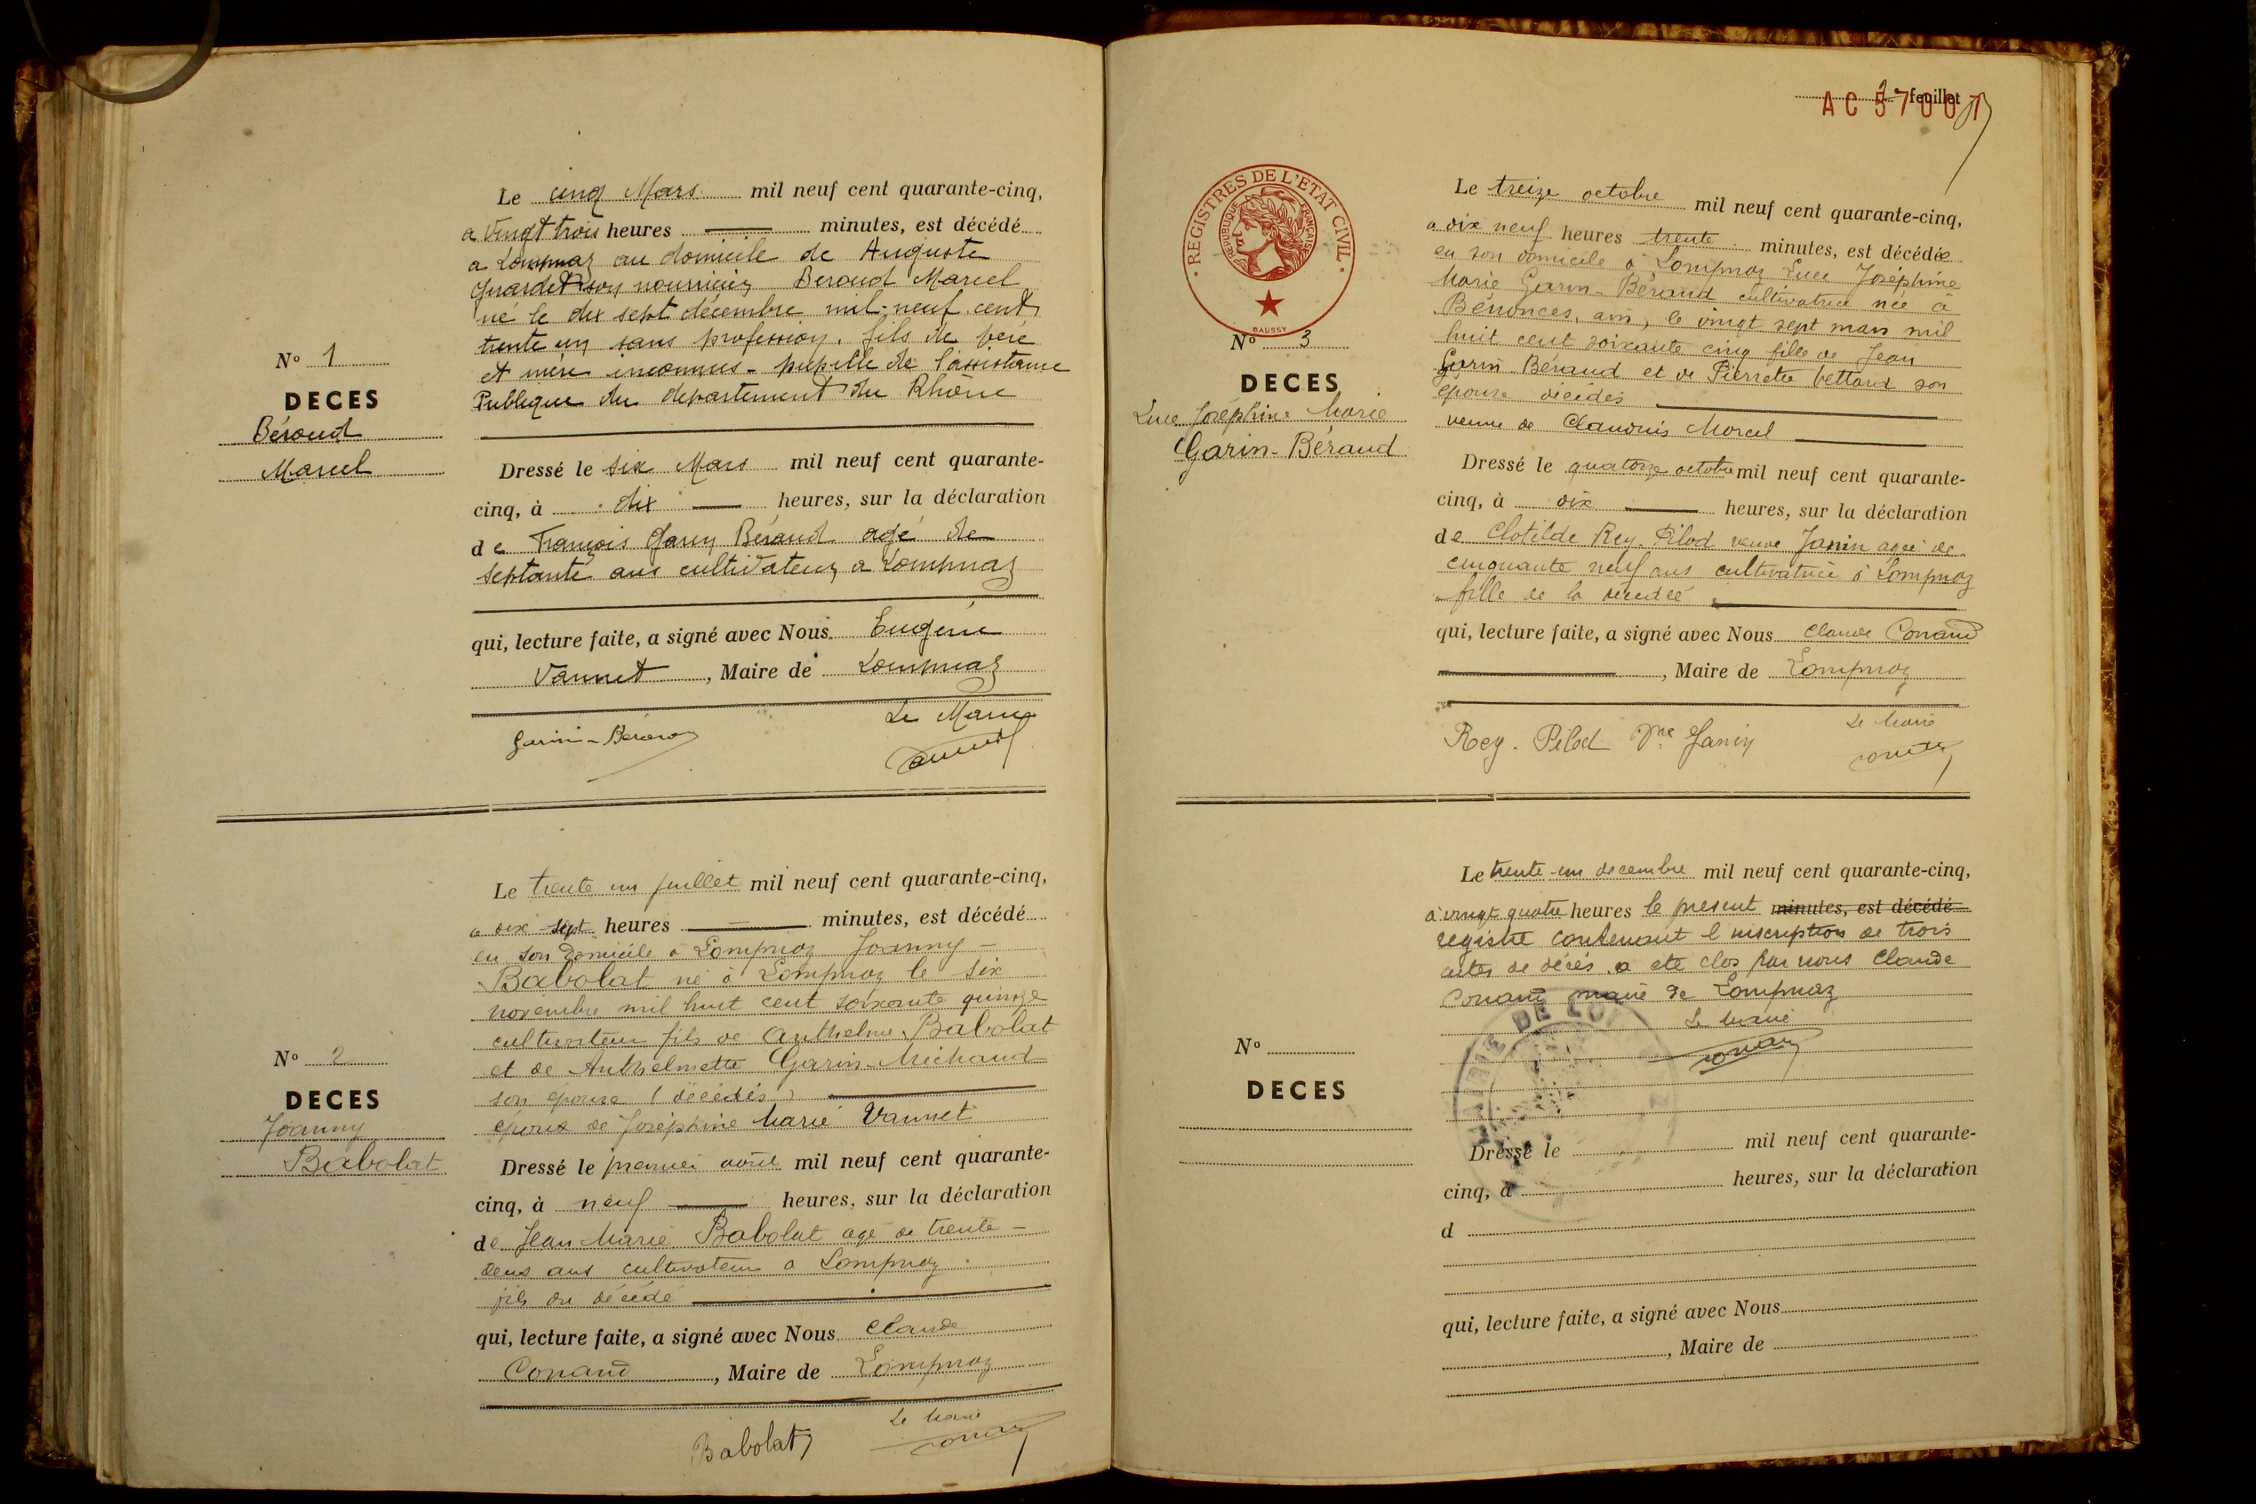 Le cinq Mars mil neuf cent quarante-cinq,
a Vingt trois heures minutes, est décédé
a Lompnaz au domicile de Auguste
son nourricier Beroud Marcel
né le dix sept décembre mil neuf cent
trente un sans profession, fils de père
et mère inconnus - pupille de l'assistance
Publique du departement du Rhône
N° 1
DECES
Béroud
Marcel
Dressé le six Mars mil neuf cent quarante-
cinq, à dix heures, sur la déclaration
de François Garin Béraud agé de
septante ans cultivateur a Lompnaz
qui, lecture faite, a signé avec Nous Eugène
Vannet, Maire de Lompnaz
Le Maire
Garin-Béraud
Le trente un juillet mil neuf cent quarante-cinq,
a dix sept heures minutes, est décédé
en son domicile à Lompnaz Joanny
Babolat né à Lompnaz le six
novembre mil huit cent soixante quinze
cultivateur fils de Anthelme Babolat
et de Anthelmette Garin-Michaud
son épouse (décédés)
époux de Joséphine Marie Vannet
N° 2
DECES
Joanny
Babolat
Dressé le premier août mil neuf cent quarante-
cinq, à neuf heures, sur la déclaration
de Jean Marie Babolat agé de trente-
deux ans cultivateur a Lompnaz
fils du décédé
qui, lecture faite, a signé avec Nous Claude
Conand, Maire de Lompnaz
Le Maire
Babolat
2e feuillet
AC 57001
REGISTRES DE L'ETAT CIVIL
REPUBLIQUE FRANÇAISE
BAUSSY
Le treize octobre mil neuf cent quarante-cinq,
a dix neuf heures trente minutes, est décédée
en son domicile à Lompnaz Luce Joséphine
Marie Garin-Béraud cultivatrice née à
Bénonces, ain, le vingt sept mars mil
huit cent soixante cinq fille de Jean
Garin Béraud et de Pierrette Vettard son
épouse décédés
veuve de Claudius Morcel
N° 3
DECES
Luce Joséphine Marie
Garin-Béraud
Dressé le quatorze octobre mil neuf cent quarante-
cinq, à dix heures, sur la déclaration
de Clotilde Rey-Pilod veuve Janin agée de
cinquante neuf ans cultivatrice à Lompnaz
fille de la décédée
qui, lecture faite, a signé avec Nous Claude Conand
, Maire de Lompnaz
Rey-Pilod Vve Janin Le Maire
Le trente-un decembre mil neuf cent quarante-cinq,
à vingt quatre heures le présent minutes, est décédé
registre contenant l'inscription de trois
actes de décès a été clos par nous Claude
Conand maire de Lompnaz
Le Maire
Conand
MAIRIE DE LO
N°
DECES
Dressé le mil neuf cent quarante-
cinq, à heures, sur la déclaration
d
qui, lecture faite, a signé avec Nous
, Maire de